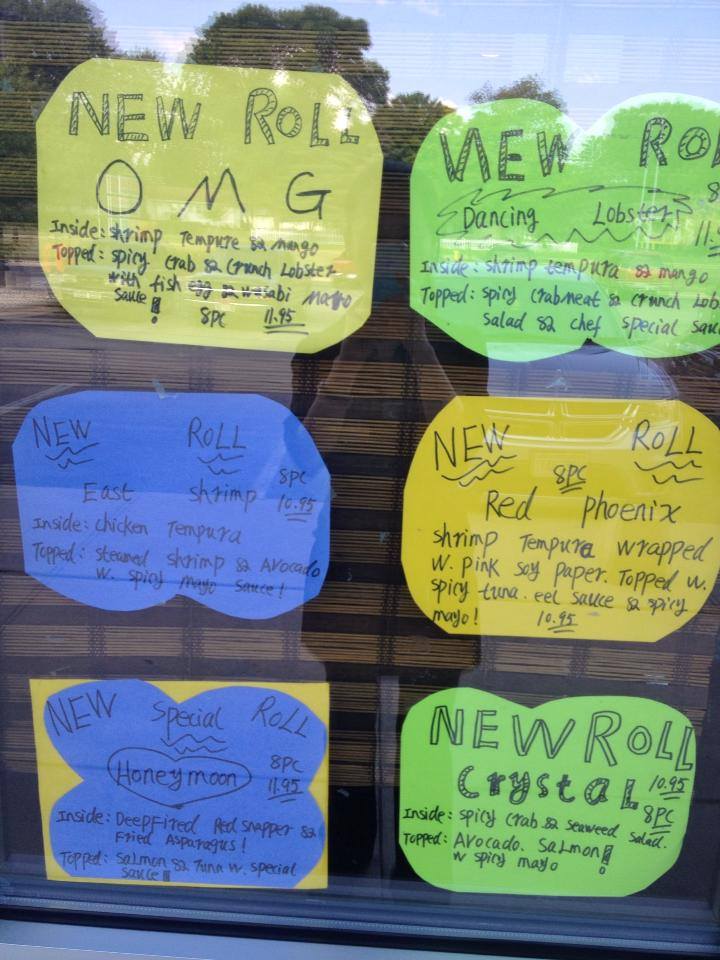 NEW ROLL
OMG
Inside: shrimp Tempure & mango
Topped: spicy crab & crunch Lobster
with fish egg & wasabi mayo
sauce!
8PC 11.95
NEW ROL
Dancing Lobster
8
11.9
Inside: shrimp tempura & mango
Topped: spicy crabmeat & crunch Lob
salad & chef special sauc
NEW ROLL
8PC
East shrimp 10.95
Inside: chicken Tempura
Topped: steamed shrimp & Avocado
w. spicy mayo sauce!
NEW ROLL
8PC
Red phoenix
shrimp Tempura wrapped
w. pink soy paper. Topped w.
spicy tuna. eel sauce & spicy
mayo! 10.95
NEW special ROLL
Honeymoon
8PC
11.95
Inside: DeepFired Red snapper &
Fried Asparagus!
Topped: salmon & Tuna w. special
sauce!
NEW ROLL
crystaL
10.95
8PC
Inside: spicy crab & seaweed salad.
Topped: Avocado. salmon!
w spicy mayo